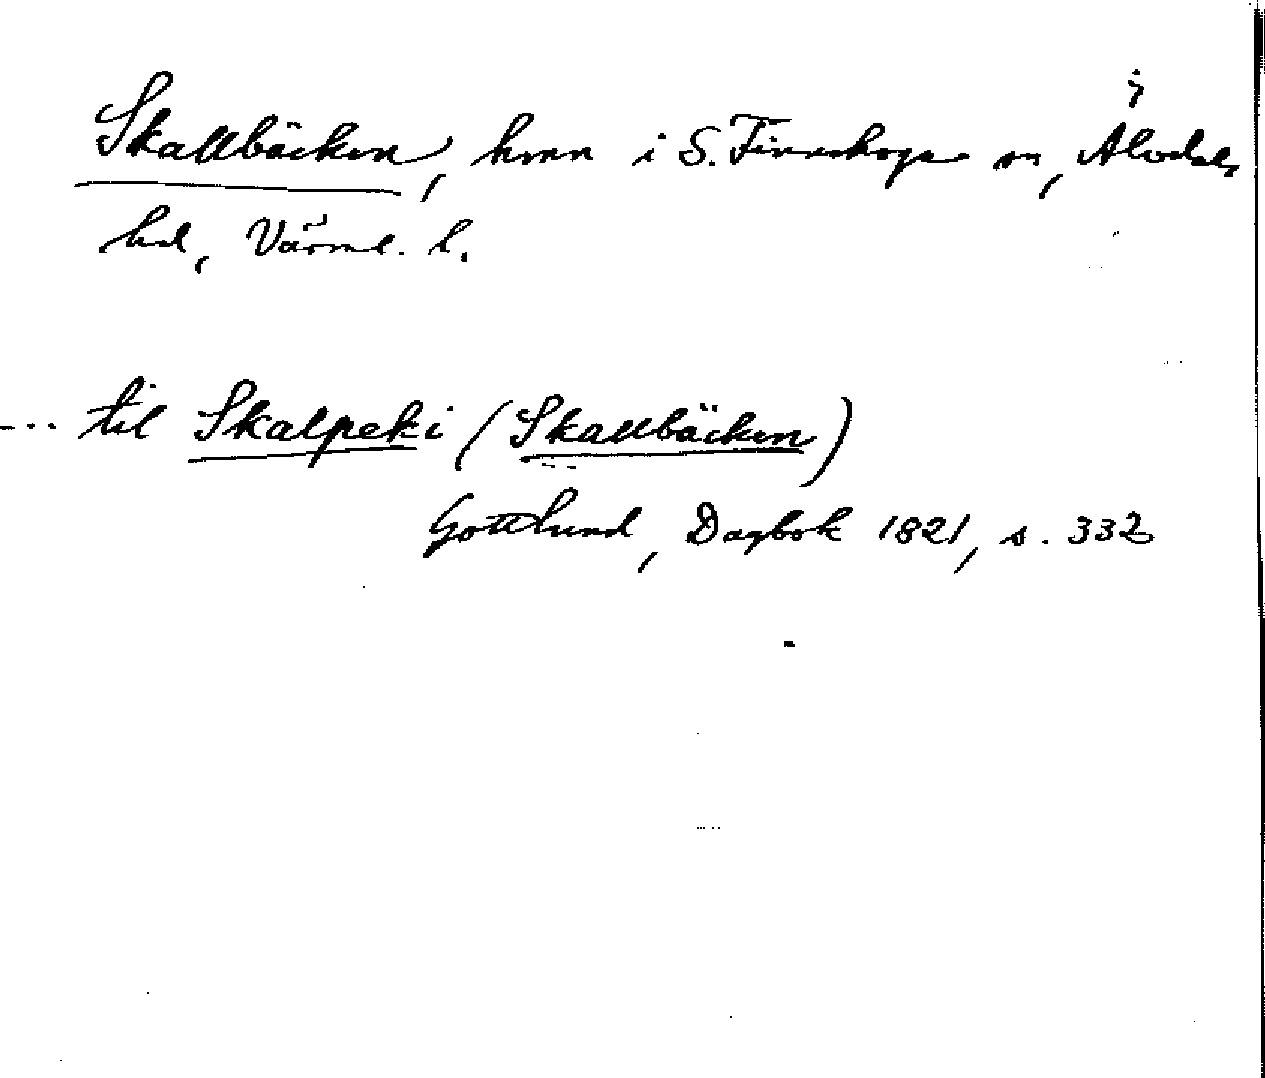 Skallbäcken, hmn i S. Finnskoga sn, Älvdals
hd, Värml. l.
... til Skalpeki (Skallbäcken)
Gottlund, Dagbok 1821, s. 332